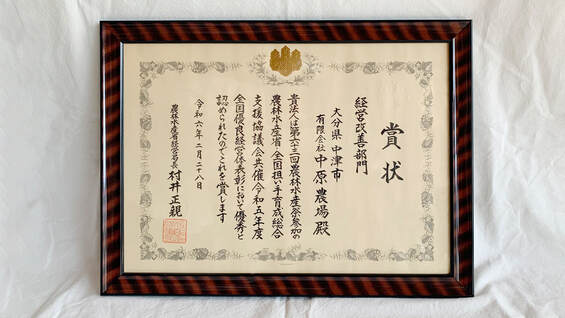 賞状
経営改善部門
大分県中津市
有限会社 中原農場 殿
貴法人は第六三回農林水産祭参加の
農林水産省・全国担い手育成総合
支援協議会共催令和五年度
全国優良経営体表彰において優秀と
認められたのでこれを賞します
令和六年二月二十八日
農林水産省経営局長 村井正親